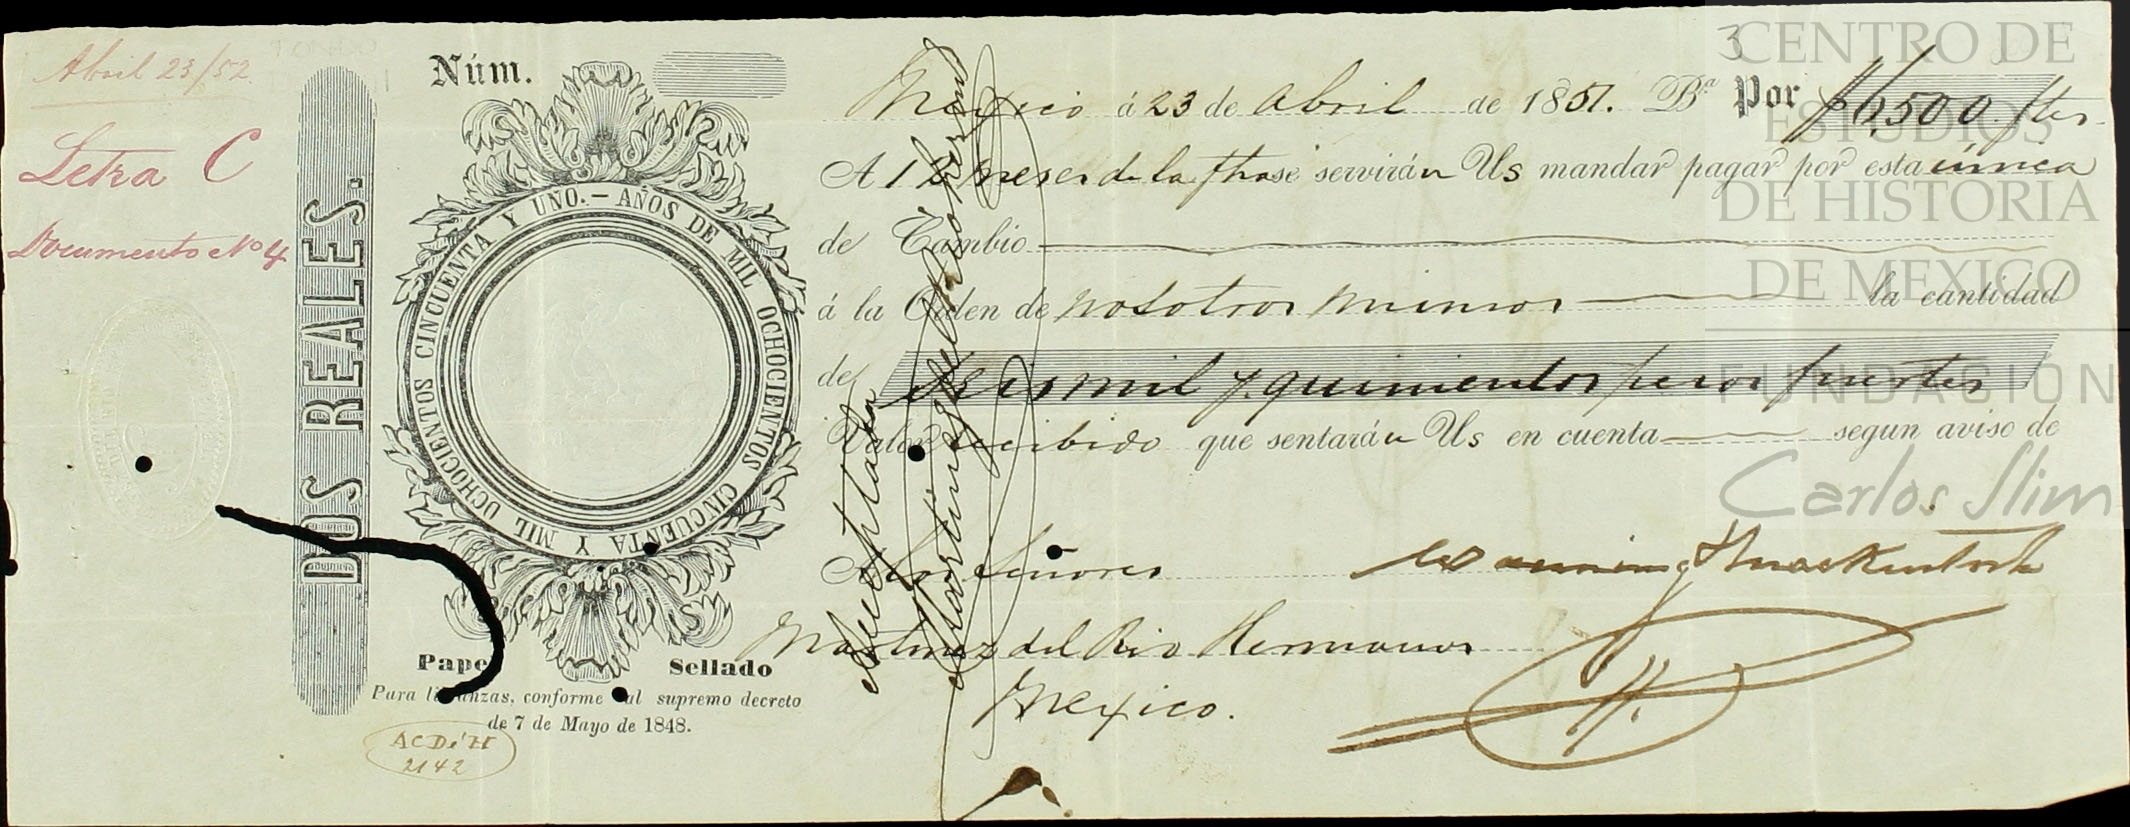 Abril 23/52.
Letra C
Documento No 4
DOS REALES.
Núm.
AÑOS DE MIL OCHOCIENTOS CINCUENTA Y MIL OCHOCIENTOS CINCUENTA Y UNO.—
Papel Sellado
Para libranzas, conforme al supremo decreto
de 7 de Mayo de 1848.
ACDiH
2142
3
Mexico á 23 de Abril de 1851. Ba Por $6,500. ftes.
A 12 meses de la fha se servirán Us mandar pagar por esta única
de Cambio
á la Orden de nosotros mismos la cantidad
de Seis mil y quinientos pesos fuertes
Valor recibido que sentarán Us en cuenta segun aviso de
A los Señores
Manning & Mackintosh
Martinez del Rio Hermanos
Mexico.
Aceptada
Martinez del Rio Hermanos
CENTRO DE
ESTUDIOS
DE HISTORIA
DE MEXICO
FUNDACIÓN
Carlos Slim